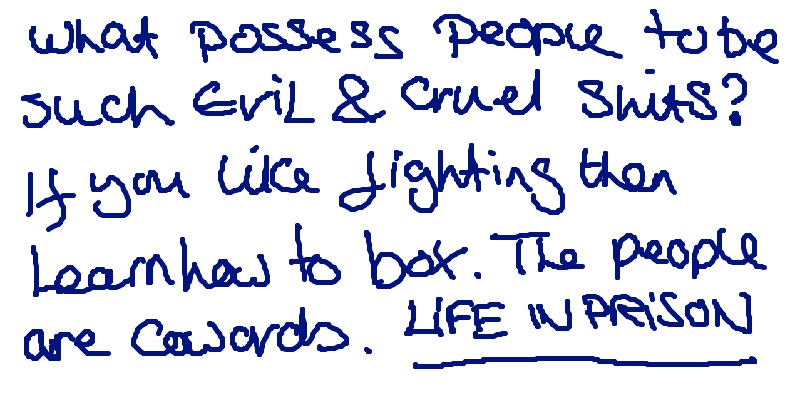 what possess people to be
such EviL & cruel shits?
If you like fighting then
Learn how to box. The people
are cowards. LIFE IN PRISON